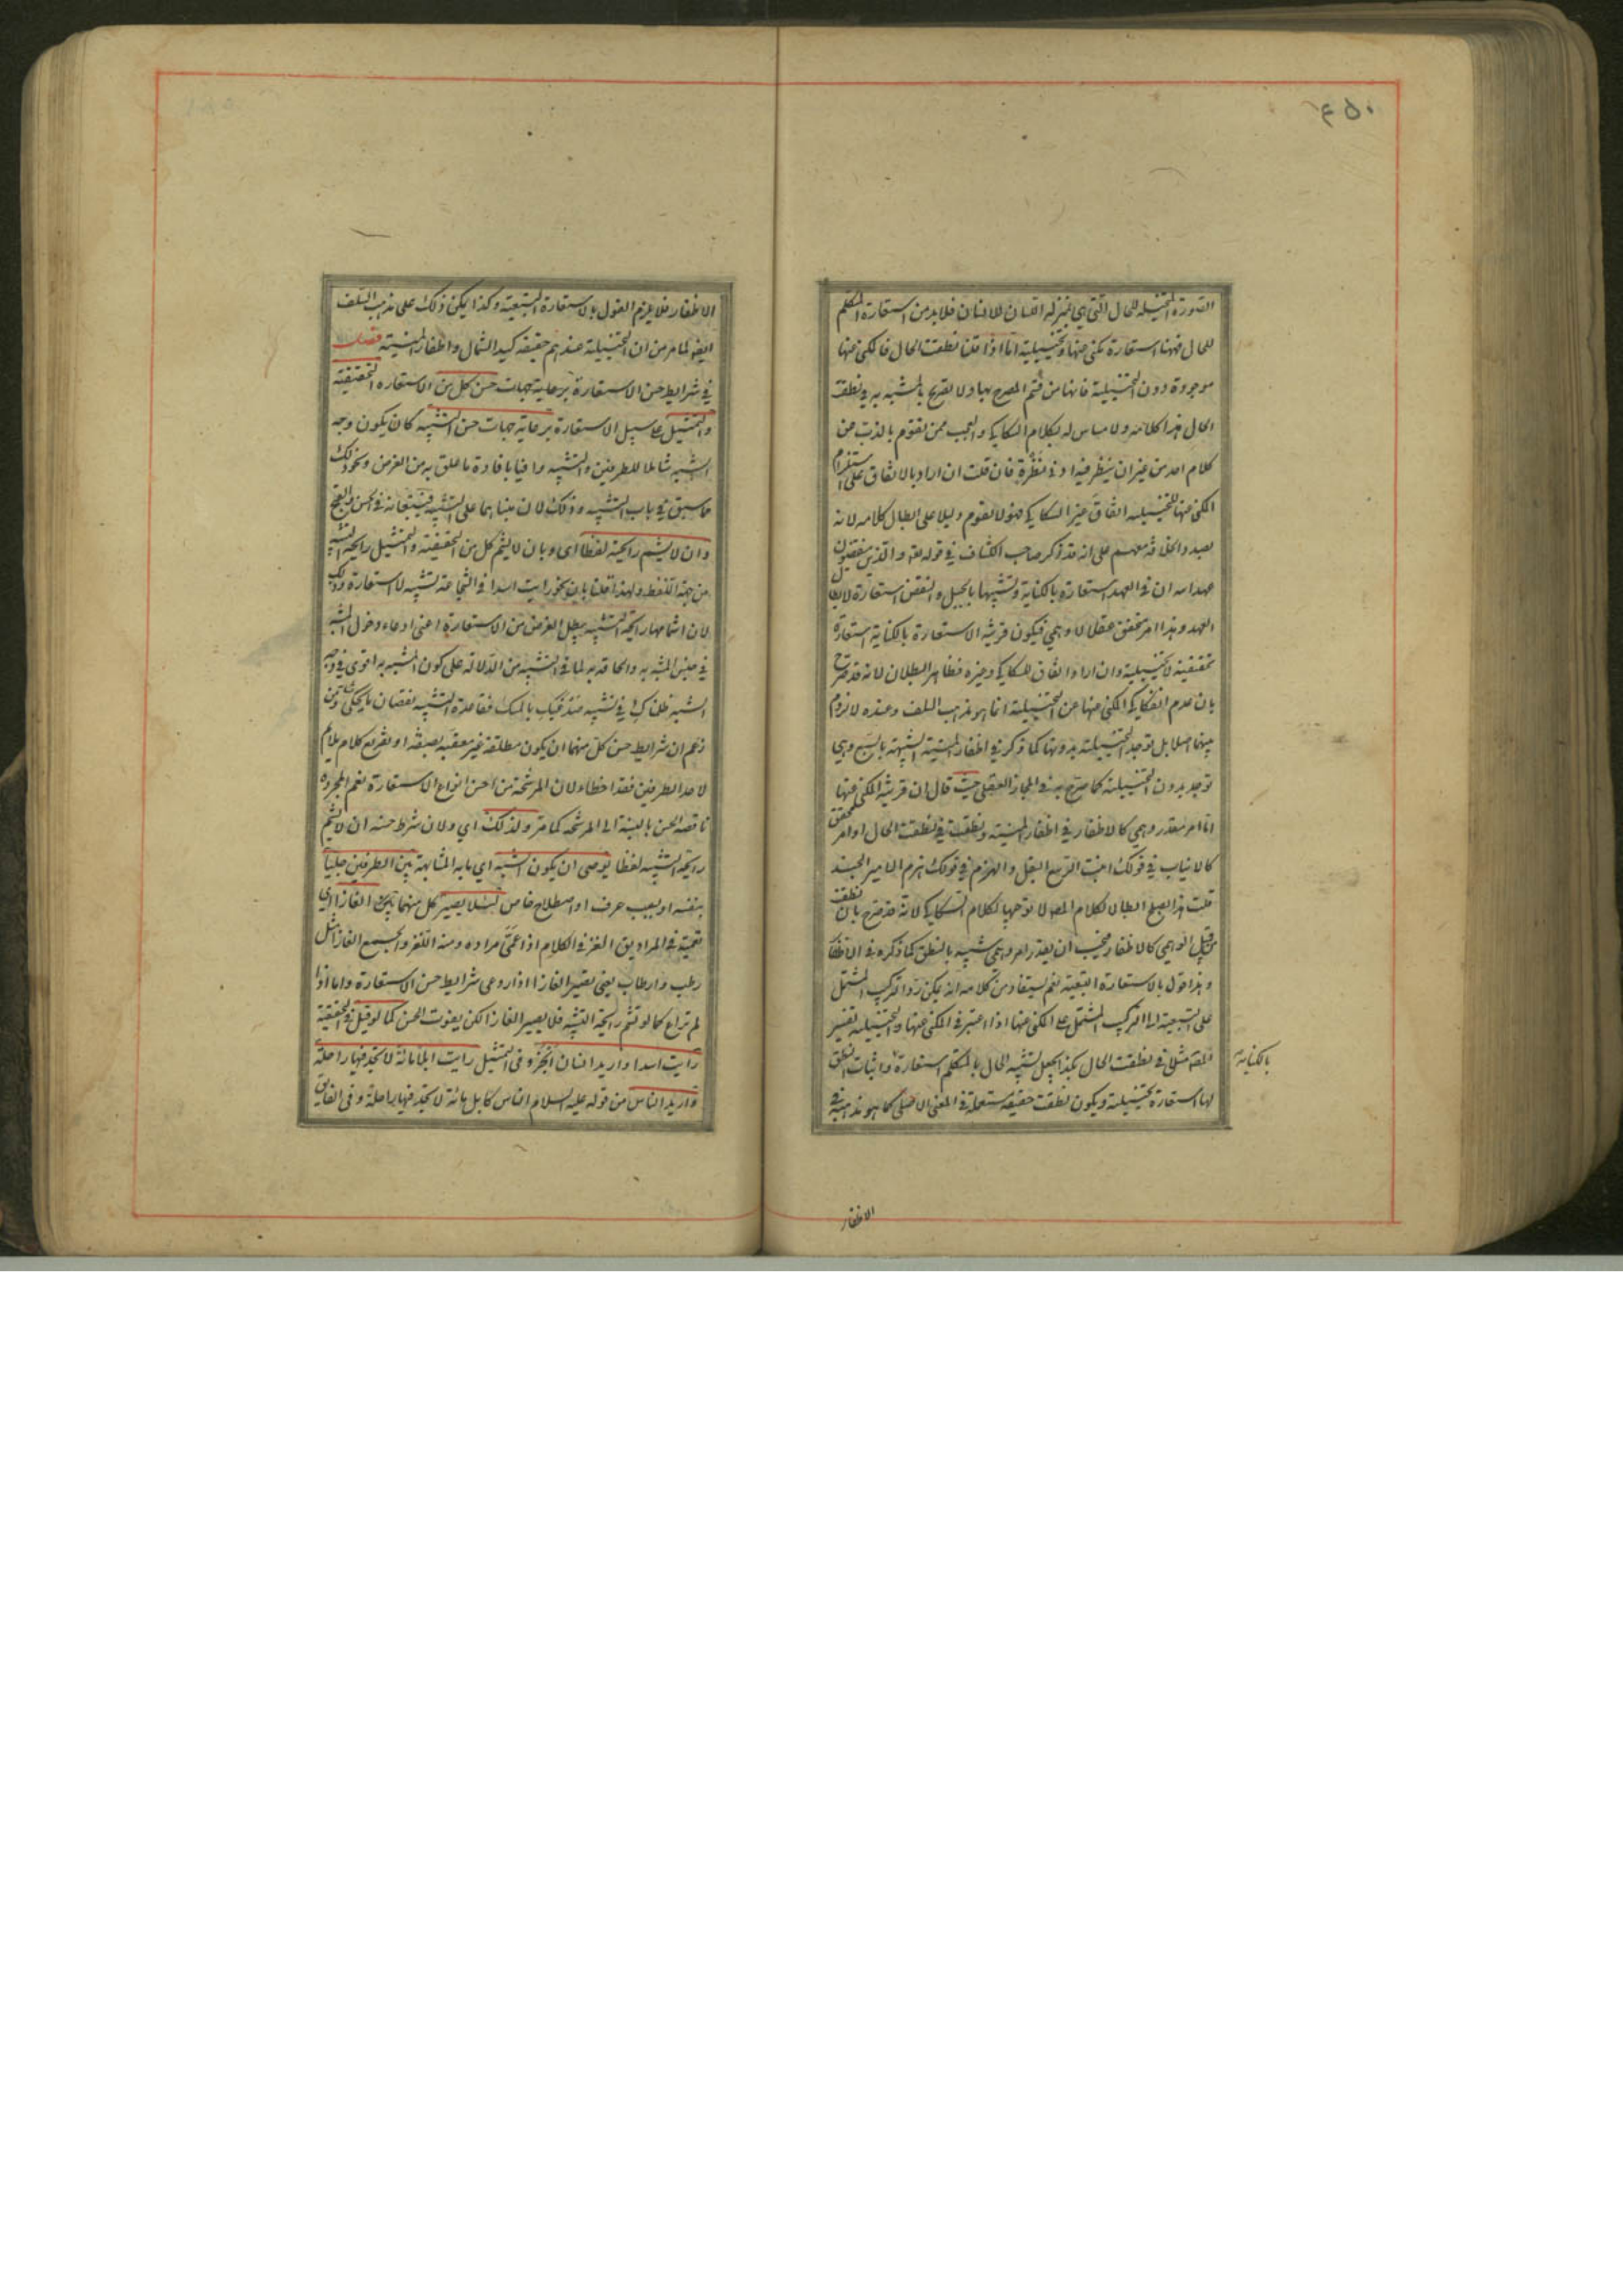 ٤٥٠
الصورة المتخيلة للحال التي هي بمنزلة اللسان للانسان فلابد من استعارة المتكلم
للحال فههنا استعارة مكنى عنها وتخييلية اما اذا قلنا نطقت الحال فالمكنى عنها
موجودة دون التخييلية فانها من قسم المصرح بها ولا تصريح بالمشبه به في نطقت
الحال هذا كلامه ولا مساس له بكلام السكاكي والعجب ممن يقوم بالذب عن
كلام احد من غير ان ينظر فيه ادنى نظرة فان قلت ان اراد بالاتفاق على استلزام
المكنى عنها للتخييلية اتفاق غير السكاكي فهو لا يقوم دليلا على ابطال كلامه لانه
بصدد الخلاف معهم على انه قد ذكر صاحب الكشاف في قوله تعالى والذين ينقضون
عهد الله ان في العهد استعارة بالكناية وتشبيها بالحبل والنقض استعارة لابطال
العهد وهذا امر محقق عقلا لا وهمي فيكون قرينة الاستعارة بالكناية استعارة
تحقيقية لا تخييلية وان اراد اتفاق السكاكي وغيره فظاهر البطلان لانه قد صرح
بان عدم انفكاك المكنى عنها عن التخييلية انما هو مذهب السلف وعنده لا لزوم
بينهما اصلا بل توجد التخييلية بدونها كما ذكر في اظفار المنية الشبيهة بالسبع وهي
توجد بدون التخييلية كما صرح به في المجاز العقلي حيث قال ان قرينة المكنى عنها
اما امر مقدر وهمي كالاظفار في اظفار المنية ونطقت في نطقت الحال او امر محقق
كالانبات في قولك انبت الربيع البقل والهزم في قولك هزم الامير الجند
قلت هذا يصلح ابطالا لكلام المصـ لا توجيها لكلام السكاكي لانه قد صرح بان نطقت
من قبيل الوهمي كالاظفار فيجب ان يقدر امر وهمي شبيه بالنطق كما ذكره في الاظفار
وهذا قول بالاستعارة التبعية نعم يستفاد من كلامه انه يمكن رد التركيب المشتمل
على التبعية الى التركيب المشتمل على المكنى عنها اذا اعتبر في المكنى عنها والتخييلية تفسير
المصـ مثلا في نطقت الحال بكذا يجعل تشبيه الحال بالمتكلم استعارة واثبات النطق
بالكناية
لها استعارة تخييلية ويكون نطقت حقيقة مستعملة في المعنى الاصلي كما هو مذهبه في
الاظفار
الاظفار فلا يلزم القول بالاستعارة التبعية وكذا يمكن ذلك على مذهب السلف
ايضا لما مر من ان التخييلية عندهم حقيقة كيد الشمال واظفار المنية فصل
في شرايط حسن الاستعارة برعاية جهات حسن كل من الاستعارة التحقيقية
والتمثيل على سبيل الاستعارة برعاية جهات حسن التشبيه كان يكون وجه
الشبه شاملا للطرفين والتشبيه وافيا بافادة ما علق به من الغرض ونحو ذلك
مما سبق في باب التشبيه وذلك لان مبناهما على التشبيه فيتبعانه في الحسن والقبح
وان لا يشم رايحته لفظا اى وبان لا يشم كل من التحقيقية والتمثيل رايحة التشبيه
من جهة اللفظ ولهذا قلنا بان نحو رايت اسدا في الشجاعة تشبيه لا استعارة وذلك
لان اشمامها رايحة التشبيه يبطل الغرض من الاستعارة اعنى ادعاء دخول المشبه
في جنس المشبه به والحاقه به لما في التشبيه من الدلالة على كون المشبه به اقوى في وجه
الشبه
زعم ان شرايط حسن كل منهما ان يكون مطلقة غير معقبة بصفة او تفريع كلام يلايم
لاحد الطرفين فقد اخطاء لان المرشحة من احسن انواع الاستعارة نعم المجردة
ناقصة الحسن بالنسبة الى المرشحة كما مر ولذلك اي ولان شرط حسنه ان لا يشم
رايحة التشبيه لفظا يوصى ان يكون الشبه اي ما به المشابهة بين الطرفين جليا
بنفسه او بسبب عرف او اصطلاح خاص لئلا يصير كل منهما الغازا اي
تعمية في المراد يق الغز في الكلام اذا عمى مراده ومنه اللغز والجمع الغاز مثل
رطب وارطاب يعنى يصير الغازا اذا روعى شرايط حسن الاستعارة واما اذا
لم تراع كما لو تشم رايحة التشبيه فلا يصير الغازا لكن يفوت الحسن كما لو قيل في التحقيقية
رايت اسدا واريد انسان ابخر وفى التمثيل رايت ابلا مائة لا تجد فيها راحلة
واريد الناس من قوله عليه السلام الناس كابل مائة لا تجد فيها راحلة وفى الفايق